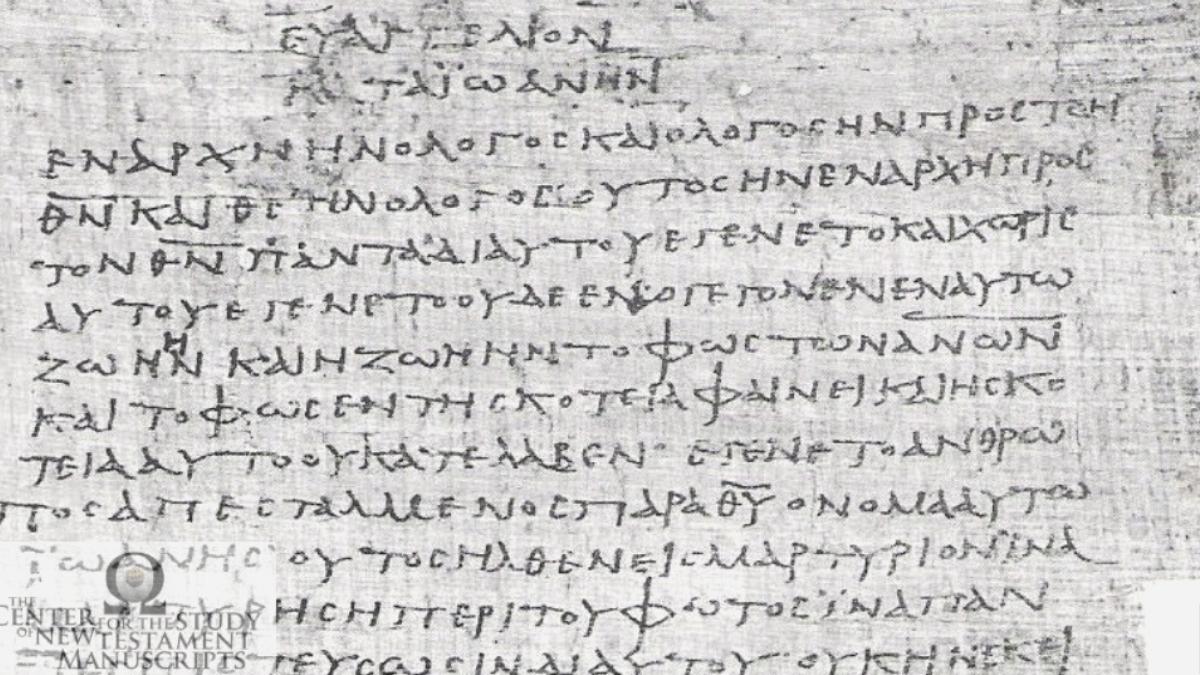 ΕΥΑΓΓΕΛΙΟΝ
ΚΑΤΑΪΩΑΝΗΝ
ΕΝΑΡΧΗΗΝΟΛΟΓΟϹΚΑΙΟΛΟΓΟϹΗΝΠΡΟϹΤΟΝ
Θ̅Ν̅ΚΑΙΘ̅Ϲ̅ΗΝΟΛΟΓΟϹΟΥΤΟϹΗΝΕΝΑΡΧΗΠΡΟϹ
ΤΟΝΘ̅Ν̅ΠΑΝΤΑΔΙΑΥΤΟΥΕΓΕΝΕΤΟΚΑΙΧΩΡΙϹ
ΑΥΤΟΥΕΓΕΝΕΤΟΟΥΔΕΕΝ·ΟΓΕΓΟΝΕΝΕΝΑΥΤΩ
ΖΩΗΗΝΚΑΙΗΖΩΗΗΝΤΟΦΩϹΤΩΝΑ̅Ν̅Ω̅Ν̅
ΚΑΙΤΟΦΩϹΕΝΤΗϹΚΟΤΕΙΑΦΑΙΝΕΙΚΑΙΗϹΚΟ
ΤΕΙΑΑΥΤΟΟΥΚΑΤΕΛΑΒΕΝ· ΕΓΕΝΕΤΟΑΝΘΡΩ
ΠΟϹΑΠΕϹΤΑΛΜΕΝΟϹΠΑΡΑΘ̅Υ̅ ΟΝΟΜΑΑΥΤΩ
ΪΩΑΝΗϹ ΟΥΤΟϹΗΛΘΕΝΕΙϹΜΑΡΤΥΡΙΟΝΪΝΑ
ΡΗϹΗΠΕΡΙΤΟΥΦΩΤΟϹΪΝΑΠΑΝ
ΤΕΥϹΩϹΙΝΔΙΑΥΤΟΥ ΟΥΚΗΝΕΚΕΙ
THE
CENTER FOR THE STUDY
OF NEW TESTAMENT
MANUSCRIPTS